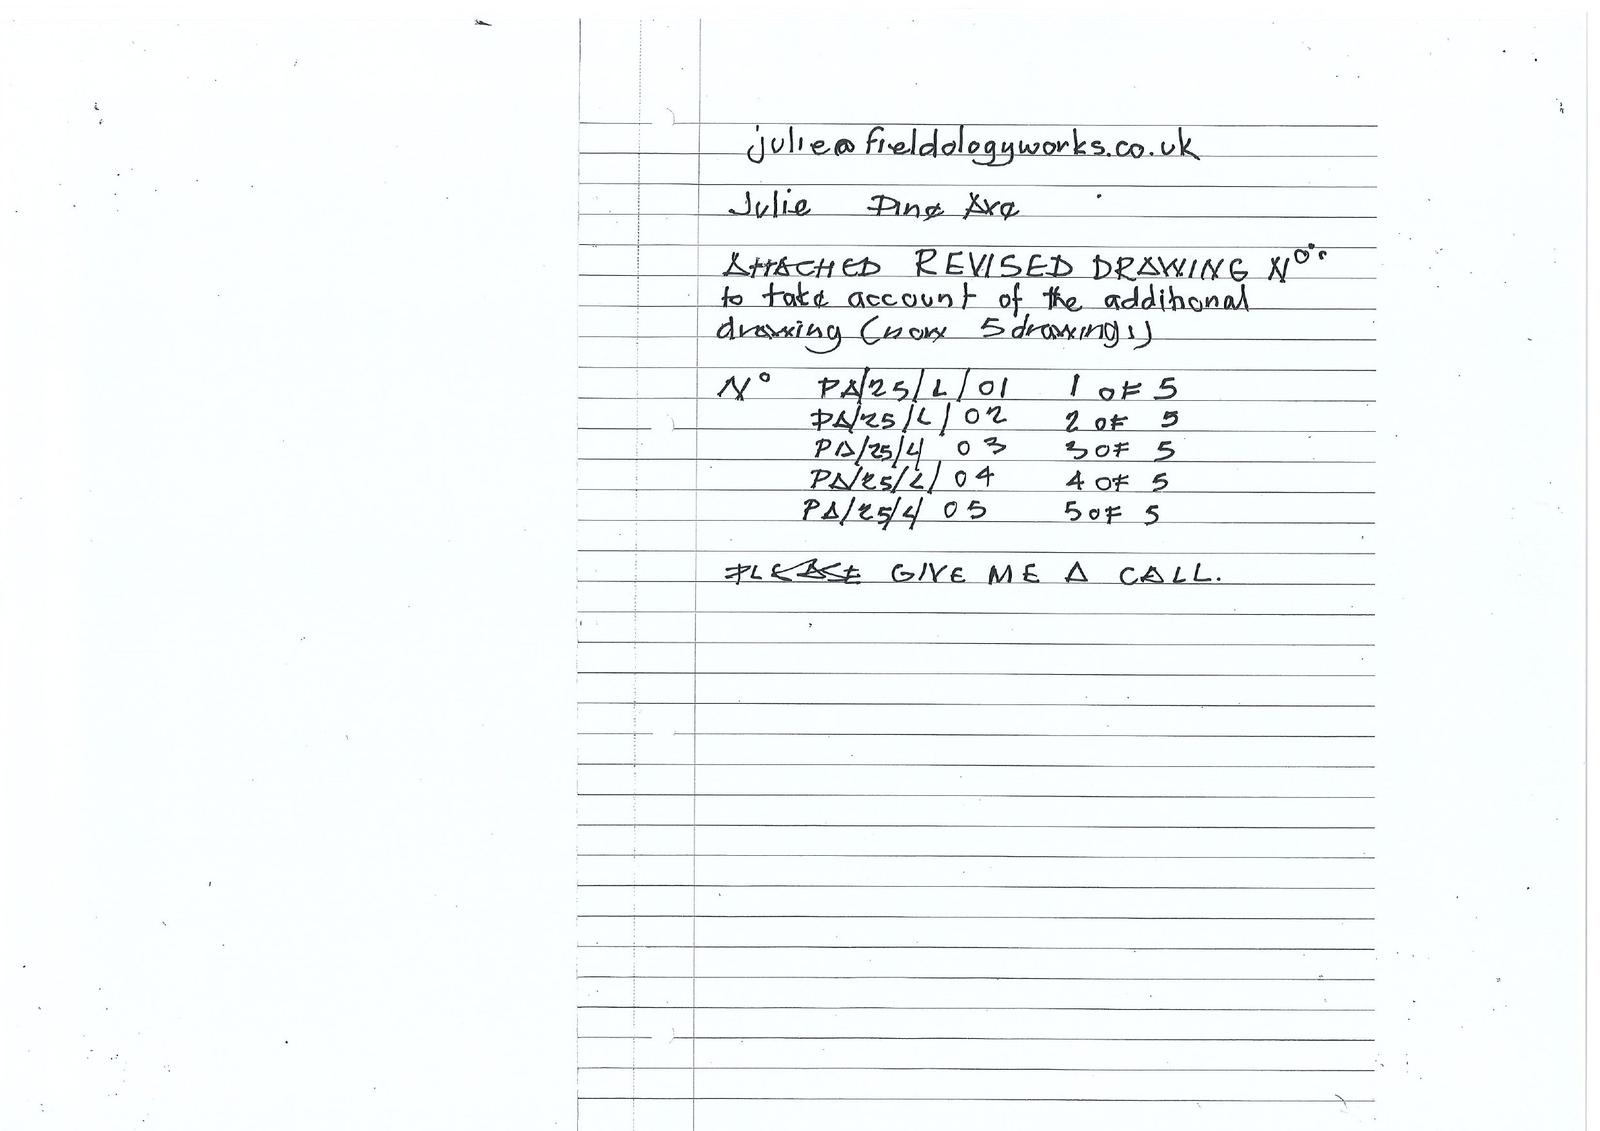 julie@fieldologyworks.co.uk
Julie Pine Ave
ATTACHED REVISED DRAWING Nos.
to take account of the additional
drawing (now 5 drawings)
No PA/25/L/01 1 OF 5
PA/25/L/02 2 OF 5
PA/25/L/ 03 3 OF 5
PA/25/L/04 4 OF 5
PA/25/L/ 05 5 OF 5
PLEASE GIVE ME A CALL.